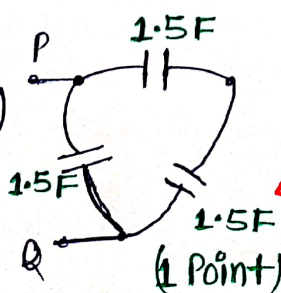 1.5F
P
)
1.5F
1.5F
Q
(1 Point)